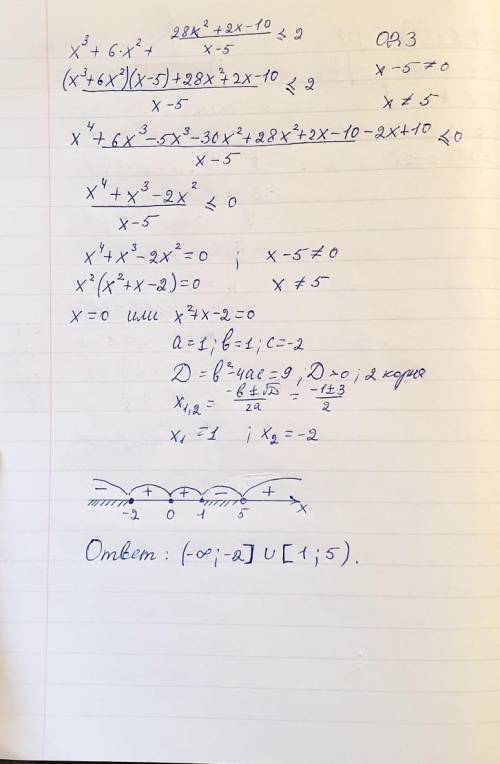 x³ + 6·x² + (28x² + 2x - 10)/(x - 5) ≤ 2
ОДЗ
((x³ + 6x²)(x - 5) + 28x² + 2x - 10)/(x - 5) ≤ 2
x - 5 ≠ 0
x ≠ 5
(x⁴ + 6x³ - 5x³ - 30x² + 28x² + 2x - 10 - 2x + 10)/(x - 5) ≤ 0
(x⁴ + x³ - 2x²)/(x - 5) ≤ 0
x⁴ + x³ - 2x² = 0 ; x - 5 ≠ 0
x²(x² + x - 2) = 0 x ≠ 5
x = 0 или x² + x - 2 = 0
a = 1; b = 1; c = -2
D = b² - 4ac = 9, D > 0; 2 корня
x₁,₂ = (-b ± √D)/2a = (-1 ± 3)/2
x₁ = 1 ; x₂ = -2
- + + - +
-2 0 1 5 x
Ответ: (-∞; -2] ∪ [1; 5).